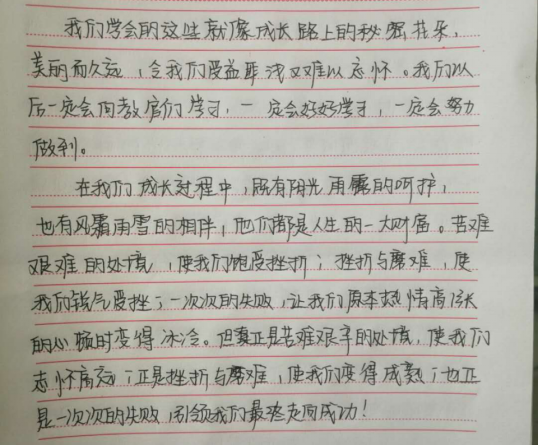 我们学会的这些就像成长路上的秘密花朵，
美丽而久远，令我们受益匪浅又难以忘怀。我们以
后一定会向教官们学习，一定会好好学习，一定会努力
做到。
在我们成长过程中，既有阳光雨露的呵护，
也有风霜雨雪的相伴，他们都是人生的一大财富。苦难
艰难的处境，使我们饱受挫折；挫折与磨难，使
我们锐气受挫；一次次的失败，让我们原本热情高涨
的心顿时变得冰冷。但真正是苦难艰辛的处境，使我们
志怀高远；正是挫折与磨难，使我们变得成熟；也正
是一次次的失败，引领我们最终走向成功！